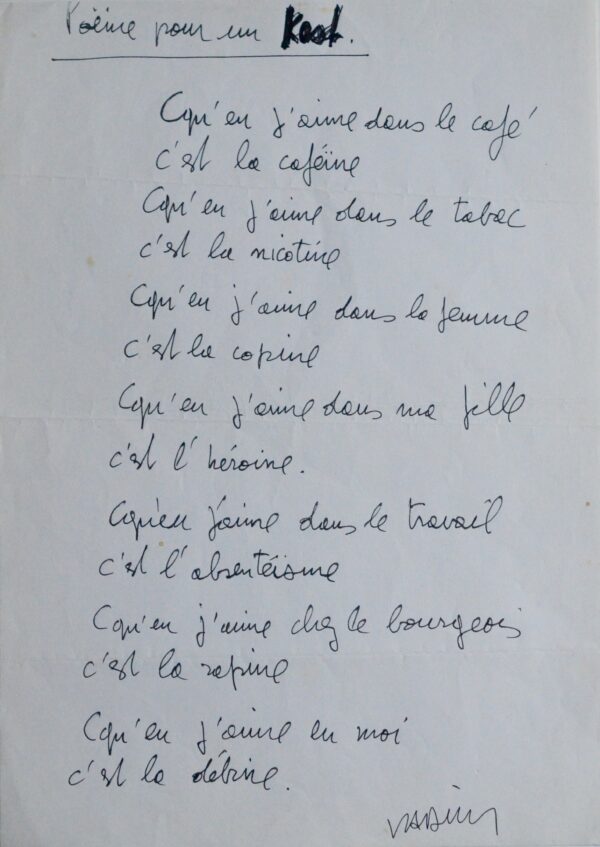 Poème pour un
Cqu'en j'aime dans le café
c'est la caféïne
Cqu'en j'aime dans le tabac
c'est la nicotine
Cqu'en j'aime dans la femme
c'est la copine
Cqu'en j'aime dans ma fille
c'est l'héroïne.
Cqu'en j'aime dans le travail
c'est l'absentéïsme
Cqu'en j'aime chez le bourgeois
c'est la rapine
Cqu'en j'aime en moi
c'est la débine.